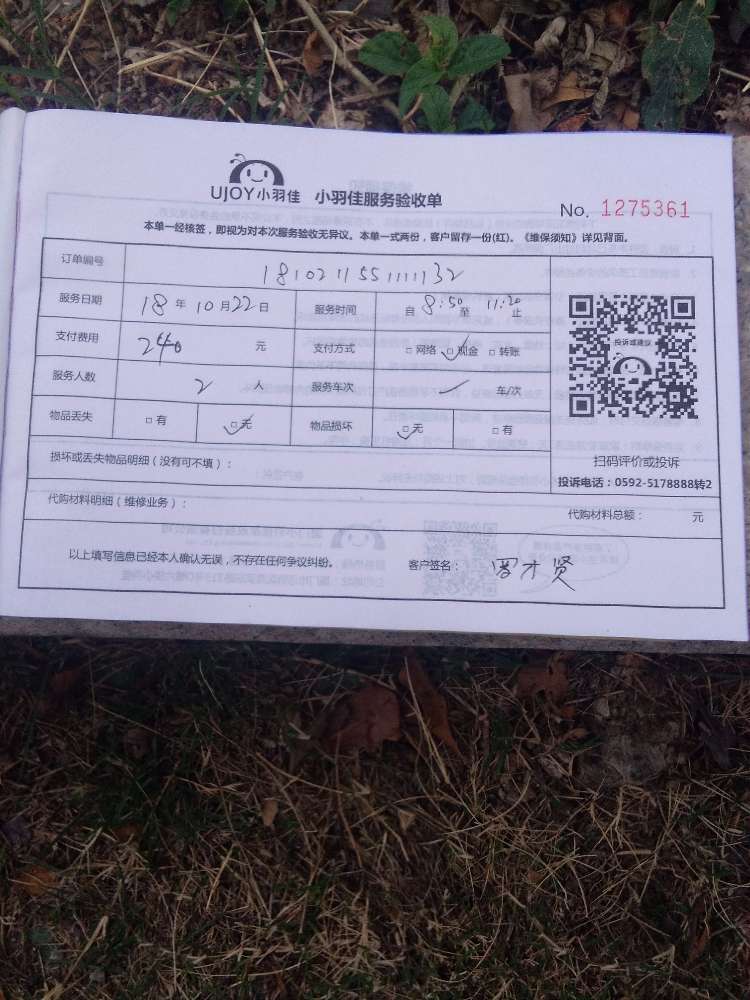 UJOY小羽佳 小羽佳服务验收单
No. 1275361
本单一经核签，即视为对本次服务验收无异议。本单一式两份，客户留存一份(红)。《维保须知》详见背面。
订单编号
服务日期 18 年 10 月 22 日 服务时间 自 8:50 至 11:20 止
支付费用 240 元 支付方式 □ 网络 □ 现金 □ 转账
投诉或建议
服务人数 2 人 服务车次 车/次
物品丢失 □ 有 □ 无 物品损坏 □ 无 □ 有
扫码评价或投诉
损坏或丢失物品明细（没有可不填）：
投诉电话：0592-5178888转2
代购材料明细（维修业务）： 代购材料总额： 元
以上填写信息已经本人确认无误，不存在任何争议纠纷。 客户签名：